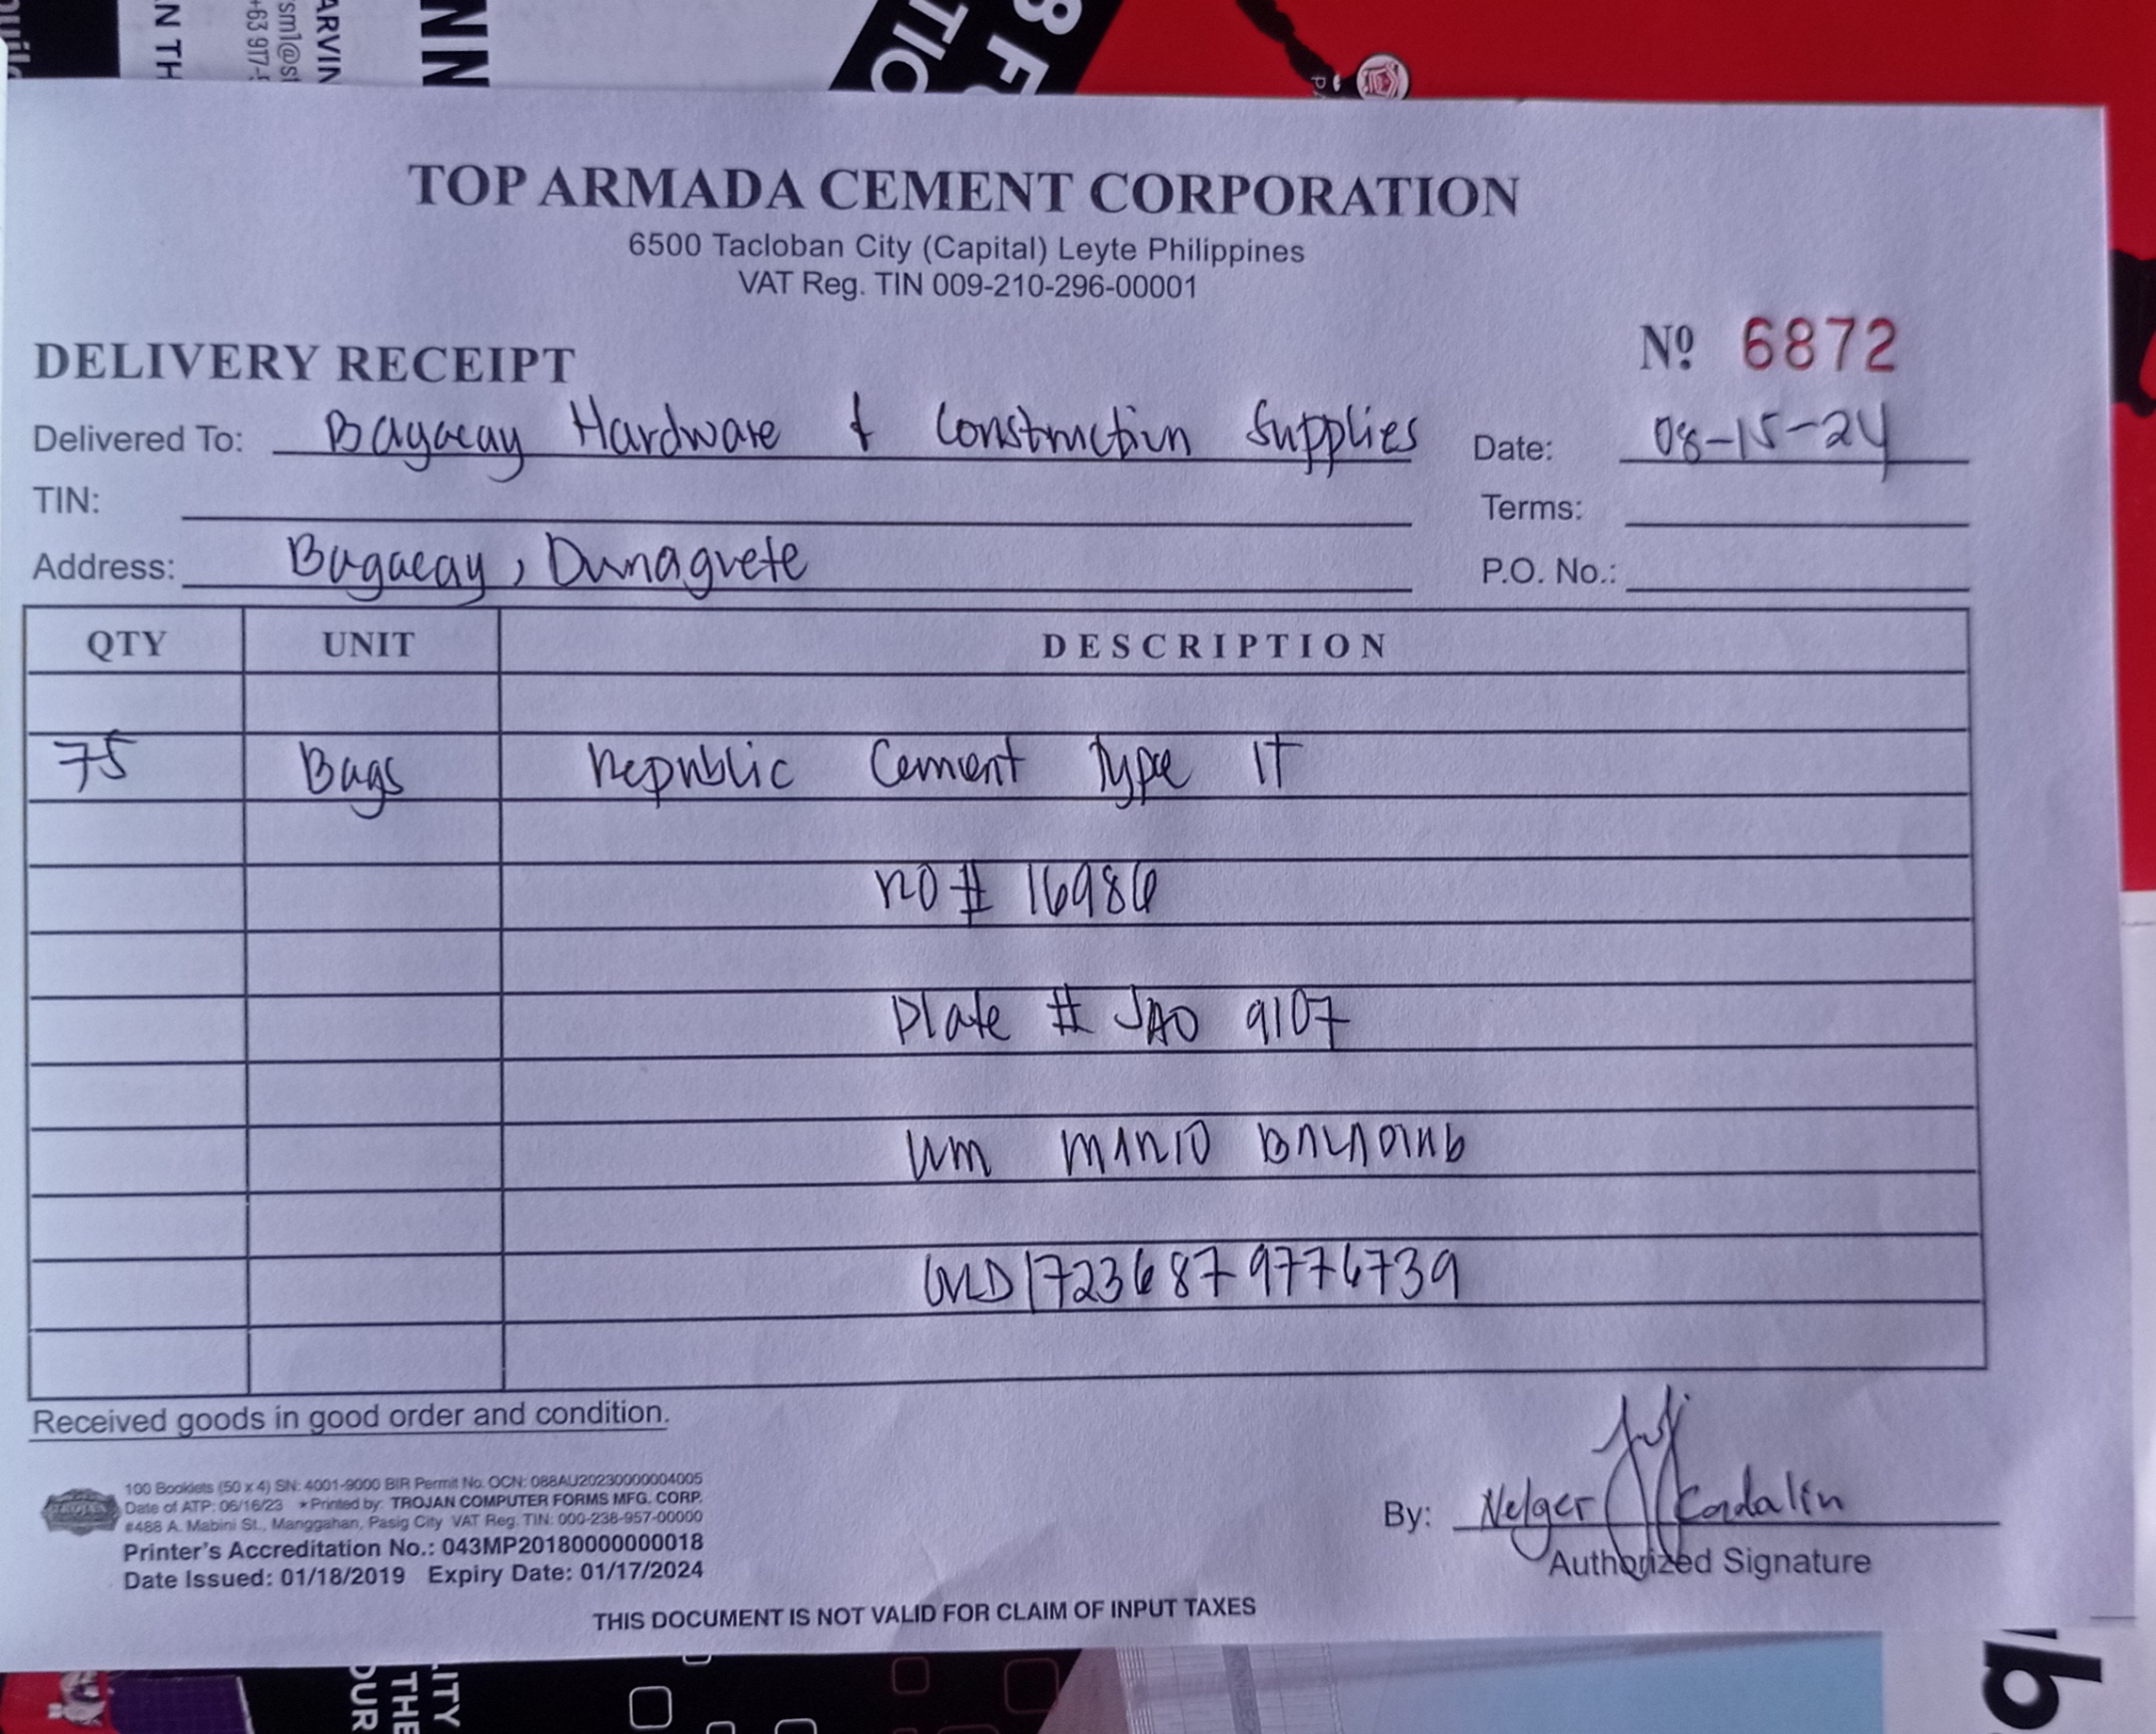 AN TH
+63 977-5
sm1@s
ARVIN
NN
TIO
8 F
TOP ARMADA CEMENT CORPORATION
6500 Tacloban City (Capital) Leyte Philippines
VAT Reg. TIN 009-210-296-00001
DELIVERY RECEIPT
Nº 6872
Delivered To: Bagacay Hardware & Construction Supplies Date: 08-15-24
TIN: Terms:
Address: Bagacay, Dumaguete P.O. No.:
QTY UNIT DESCRIPTION
75 Bags Republic Cement Type 1T
RO# 16986
Plate # JAO 9107
MARIO
17236879776739
Received goods in good order and condition.
100 Booklets (50 x 4) SN: 4001-9000 BIR Permit No. OCN: 088AU20230000004005
Date of ATP: 06/16/23 ★Printed by: TROJAN COMPUTER FORMS MFG. CORP.
#488 A. Mabini St., Manggahan, Pasig City VAT Reg. TIN: 000-238-957-00000
Printer's Accreditation No.: 043MP20180000000018
Date Issued: 01/18/2019 Expiry Date: 01/17/2024
By: Nelger Cadalin
Authorized Signature
THIS DOCUMENT IS NOT VALID FOR CLAIM OF INPUT TAXES
OUR
THE
LITY